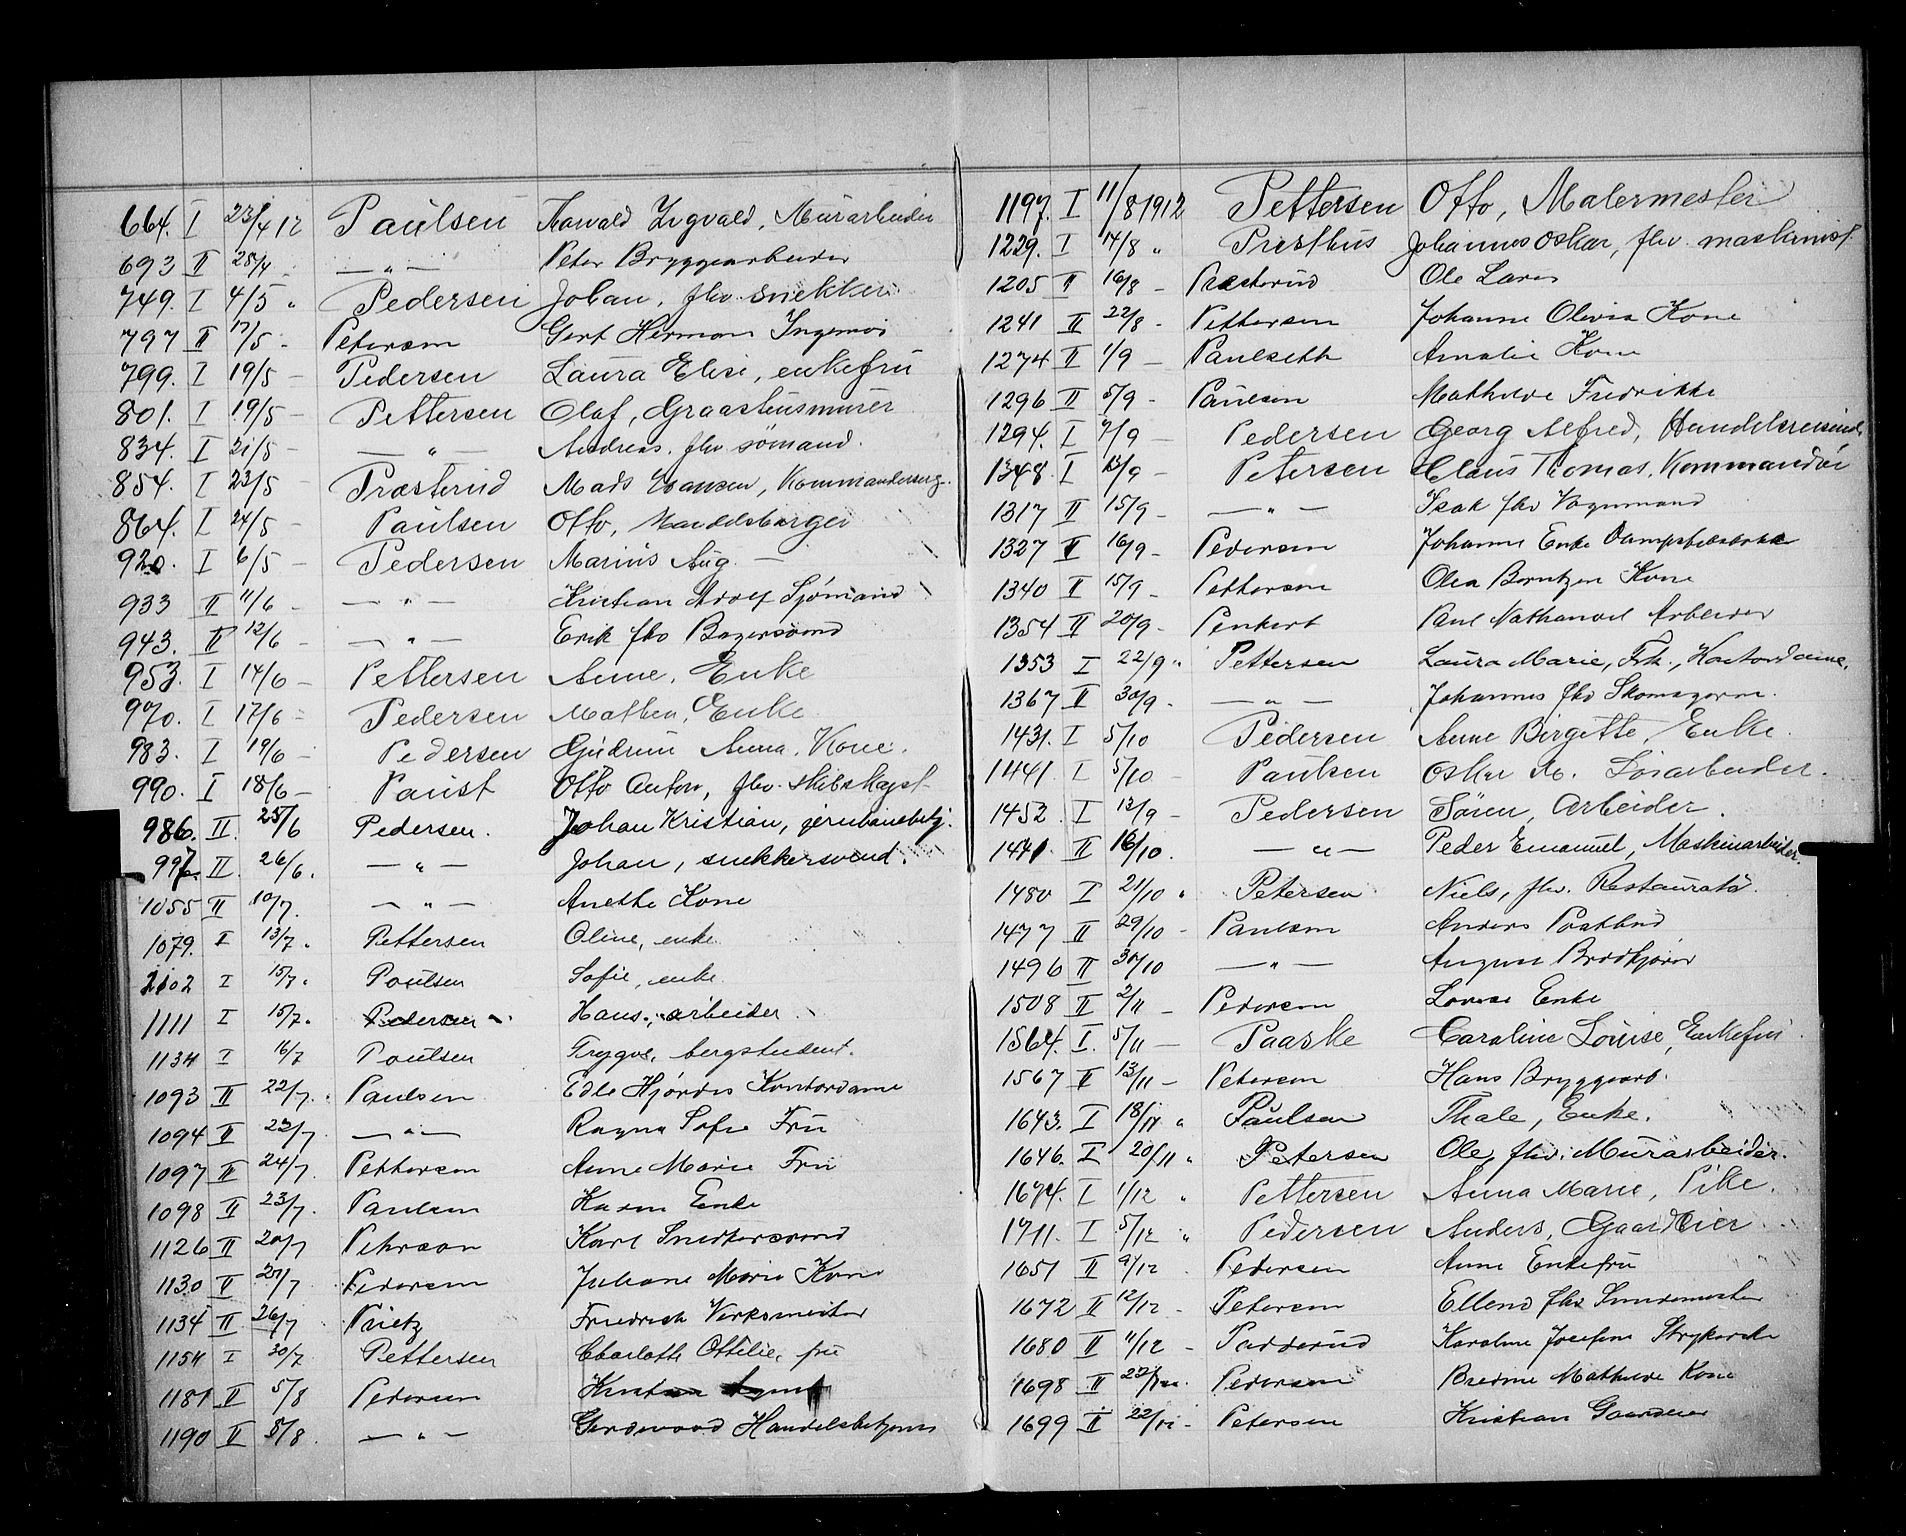 664. I 23/4 12 Paulsen Harald Ingvald, Murarbeider
693 II 25/4 - — " — Peter Bryggearbeider
749. I 4/5 " Pedersen Johan, fhv. snekker
797 II 17/5 - Petersen Gert Herman Ingeniør
799. I 19/5 — Pedersen Laura Elise, enkefru
801. I 19/5 — Pettersen Olaf, Graastensmurer
834. I 21/5 — — " — Andreas, fhv sømand.
854. I 23/5 — Præsterud Mads Hansen,
864. I 24/5 — Paulsen Otto, Handelsborger
920. I 6/5 — Pedersen Marius Aug. —
933 II 11/6 - — " — Kristian Adolf Sjømand
943. II 12/6 - — " — Erik fhv Bagersvend
953. I 14/6 — Pettersen Anne, Enke
970. I 17/6 - Pedersen Mathea, Enke
983. I 19/6 — Pedersen Gudrun Anna, Kone.
990. I 18/6 — Paust Otto Anton, fhv. skibskapt.
986. II. 25/6 Pedersen. Johan Kristian, jernbanebetj.
997. II. 26/6. — " — Johan, snekkersvend.
1055 II 10/7. — " — Anethe Kone
1079. I 13/7. Pettersen Oline, enke
1102 I 15/7. Poulsen Sofie, enke
1111 I 15/7. Pedersen Hans, arbeider
1134 I 16/7 Poulsen Trygve, bergstudent.
1093 II 22/7. Paulsen Edle Hjørdis Kontordame
1094 II 23/7 — " — Ragna Sofie Fru
1097 II 24/7 Pettersen Anne Marie Fru
1098 II 23/7. Paulsen Karen Enke
1126 II 20/7 Pehrson Karl Snedkersvend
1130 II 27/7 Pedersen Juliane Marie Kone
1134 II 26/7 Prietz Friedrich Verksmester
1154 I 30/7 Pettersen Charlotte Ottilie, fru
1181 II 5/8 Pedersen Kristian
1190 II 8/8. — " — Handelsbetjent
1197. I 11/8 1912 Pettersen Otto, Malermester
1229. I 14/8 " Presthus Johannes Oskar, fhv. maskinist.
1205 II 16/8 - Præsterud Ole Lares
1241 II 22/8 - Pettersen Johanne Olivia Kone
1274 II 1/9 — Paulseth Amalie Kone
1296 II 5/9 - Paulsen Mathilde Fredrikke
1294. I 7/9 — Pedersen Georg Alfred, Handelsreisende
1348. I 13/9 - Petersen Claus Thomas, Kommandør
1317 II 15/9 - — " — Isak fhv Vognmand
1327 II 16/9 - Pedersen Johanne Enke
1340 II 15/9 - Pettersen Olea Berntzen Kone
1354 II 20/9 - Penkert Paul Nathanael Arbeider
1353 I 22/9 " Pettersen Laura Marie, Frk., Kontordame.
1367 II 30/9. — " — Johannes fhv Skomagerm.
1431. I 5/10 Pedersen Anne Birgitte, Enke.
1441. I 5/10 - Paulsen Oskar
1452. I 13/9 - Pedersen Søren, Arbeider.
1471 II 16/10. — " — Peder Emanuel, Maskinarbeider.
1480 I 21/10 " Petersen Niels, fhv. Restauratør.
1477 II 29/10 - Paulsen Anders Postbud
1496 II 30/10 — " — August Brødkjører
1508 II 2/11 - Pedersen Lovise Enke
1564. I. 5/11 — Paaske Caroline Louise, Enkefru.
1567 II 13/11 - Petersen Hans Bryggearb.
1643. I 18/11 " Paulsen Thale, Enke.
1646. I 20/11 " Petersen Ole, fhv. Murarbeider.
1674. I 1/12 " Pettersen Anna Marie, Pike.
1711. I 5/12 " Pedersen Anders, Gaardeier
1651 II 9/12 - Pedersen Anne Enkefru
1672 II 12/12 - Petersen Ellend fhv
1680 II 11/12 - Padderud Karoline Josefine Strykerske
1698 II 22/12. Pedersen Bredine Mathilde Kone
1699 II 22/12 - Petersen Kristian Gaardeier